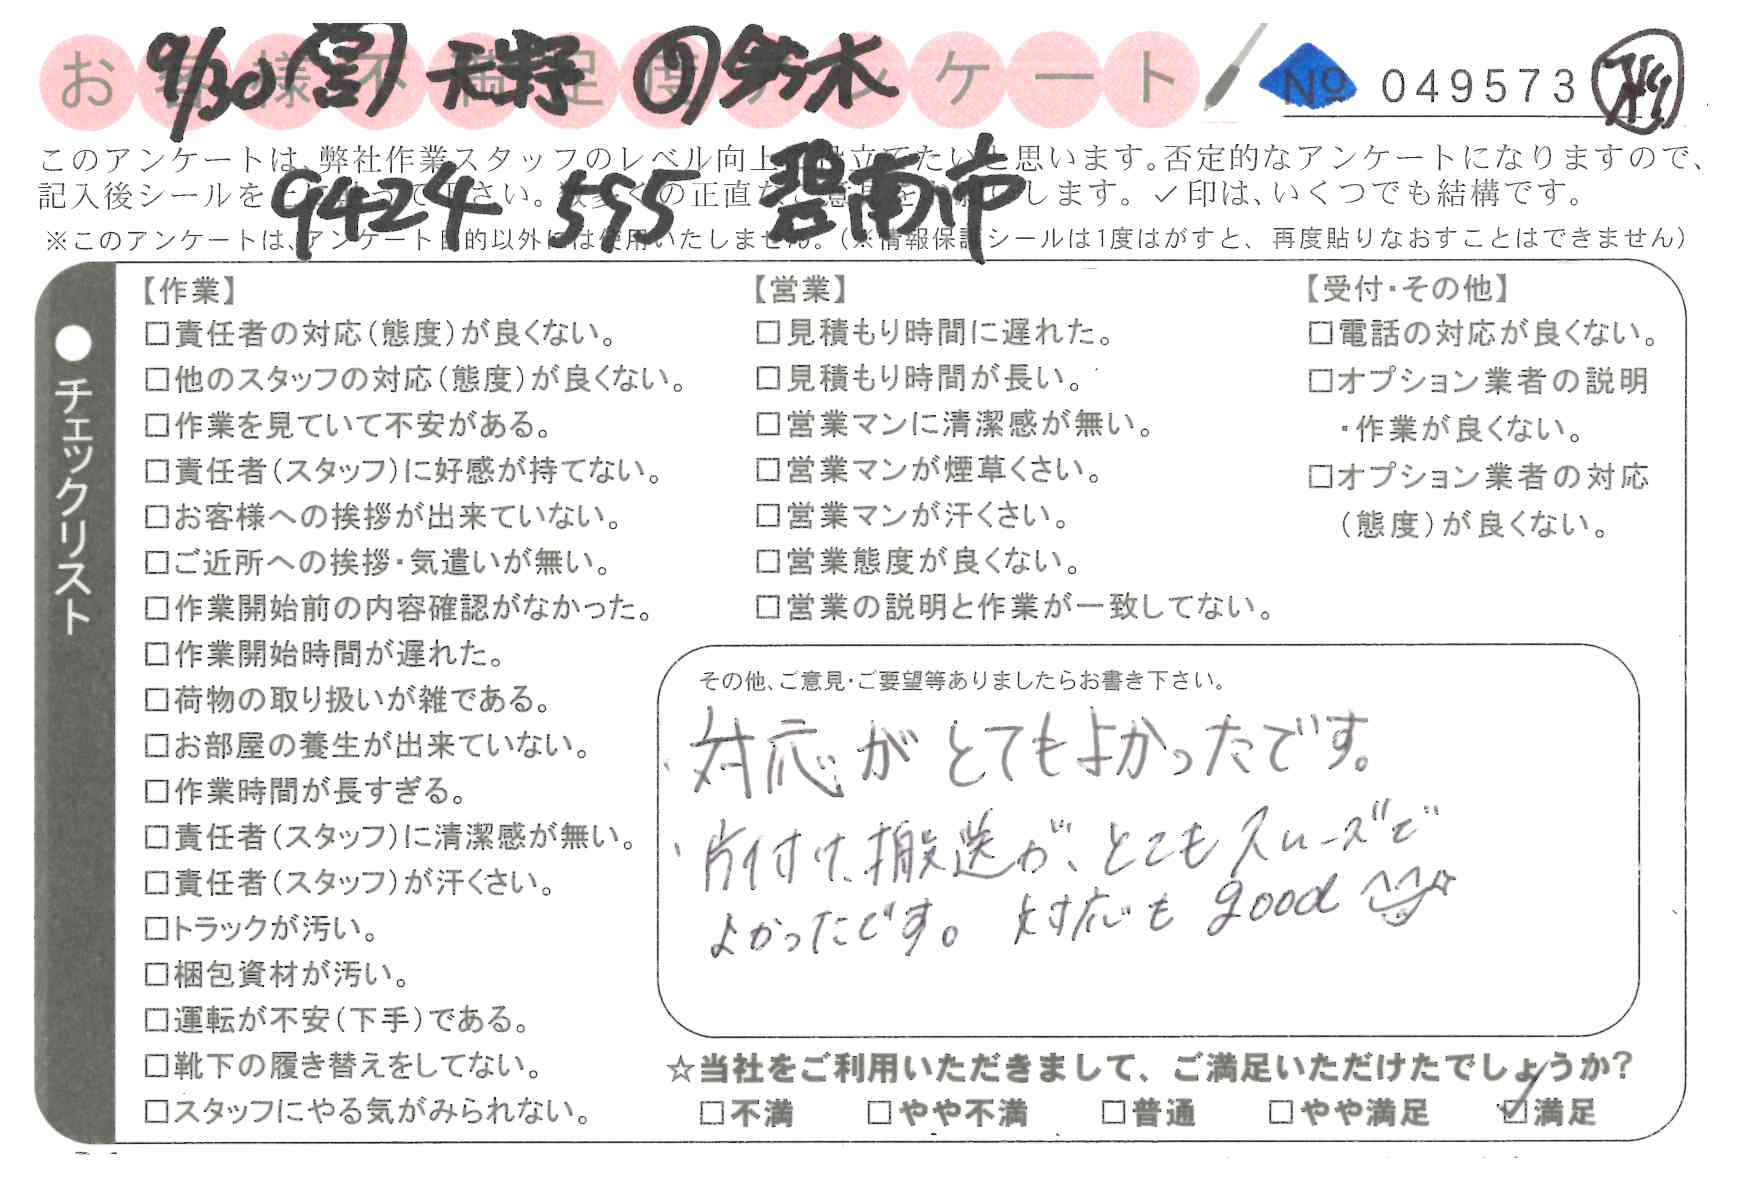 お客様不満足度アンケート
9/30 営 天野 リ 鈴木
№ 049573
9424 595 碧南市
このアンケートは、弊社作業スタッフのレベル向上に役立てたいと思います。否定的なアンケートになりますので、
記入後シールを 下さい。 の正直な します。✓印は、いくつでも結構です。
※このアンケートは、アンケート目的以外には使用いたしません。(※情報保護シールは1度はがすと、再度貼りなおすことはできません)
●チェックリスト
【作業】
□責任者の対応(態度)が良くない。
□他のスタッフの対応(態度)が良くない。
□作業を見ていて不安がある。
□責任者(スタッフ)に好感が持てない。
□お客様への挨拶が出来ていない。
□ご近所への挨拶・気遣いが無い。
□作業開始前の内容確認がなかった。
□作業開始時間が遅れた。
□荷物の取り扱いが雑である。
□お部屋の養生が出来ていない。
□作業時間が長すぎる。
□責任者(スタッフ)に清潔感が無い。
□責任者(スタッフ)が汗くさい。
□トラックが汚い。
□梱包資材が汚い。
□運転が不安(下手)である。
□靴下の履き替えをしてない。
□スタッフにやる気がみられない。
【営業】
□見積もり時間に遅れた。
□見積もり時間が長い。
□営業マンに清潔感が無い。
□営業マンが煙草くさい。
□営業マンが汗くさい。
□営業態度が良くない。
□営業の説明と作業が一致してない。
【受付・その他】
□電話の対応が良くない。
□オプション業者の説明
・作業が良くない。
□オプション業者の対応
(態度)が良くない。
その他、ご意見・ご要望等ありましたらお書き下さい。
、対応が とてもよかったです。
、片付け、搬送が、とてもスムーズで
よかったです。 対応も good
☆当社をご利用いただきまして、ご満足いただけたでしょうか?
□不満 □やや不満 □普通 □やや満足 ☑満足